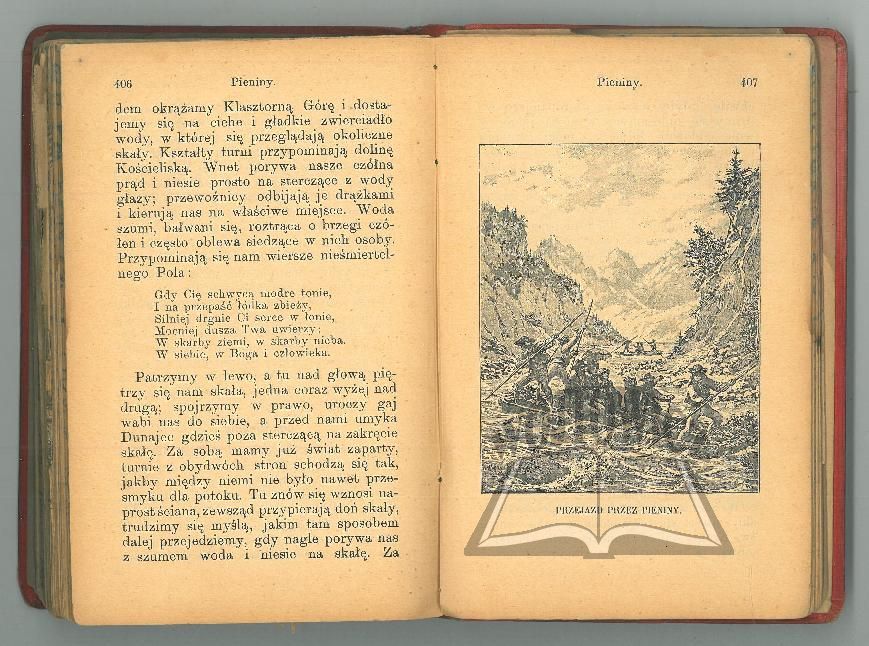 406
Pieniny.
dem okrążamy Klasztorną Górę i dosta-
jemy się na ciche i gładkie zwierciadło
wody, w której się przeglądają okoliczne
skały. Kształty turni przypominają dolinę
Kościeliską. Wnet porywa nasze czółna
prąd i niesie prosto na sterczące z wody
głazy; przewoźnicy odbijają je drążkami
i kierują nas na właściwe miejsce. Woda
szumi, bałwani się, roztrąca o brzegi czó-
łen i często oblewa siedzące w nich osoby.
Przypominają się nam wiersze nieśmiertel-
nego Pola:
Gdy Cię schwycą modre tonie,
I na przepaść łódka zbieży,
Silniej drgnie Ci serce w łonie,
Mocniej dusza Twa uwierzy:
W skarby ziemi, w skarby nieba.
W siebie, w Boga i człowieka.
Patrzymy w lewo, a tu nad głową pię-
trzy się nam skała, jedna coraz wyżej nad
drugą; spojrzymy w prawo, uroczy gaj
wabi nas do siebie, a przed nami umyka
Dunajec gdzieś poza sterczącą na zakręcie
skałę. Za sobą mamy już świat zaparty,
turnie z obydwóch stron schodzą się tak,
jakby między niemi nie było nawet prze-
smyku dla potoku. Tu znów się wznosi na-
prost ściana, zewsząd przypierają doń skały,
trudzimy się myślą, jakim tam sposobem
dalej przejedziemy, gdy nagle porywa nas
z szumem woda i niesie na skałę. Za
Pieniny.
407
PRZEJAZD PRZEZ PIENINY.